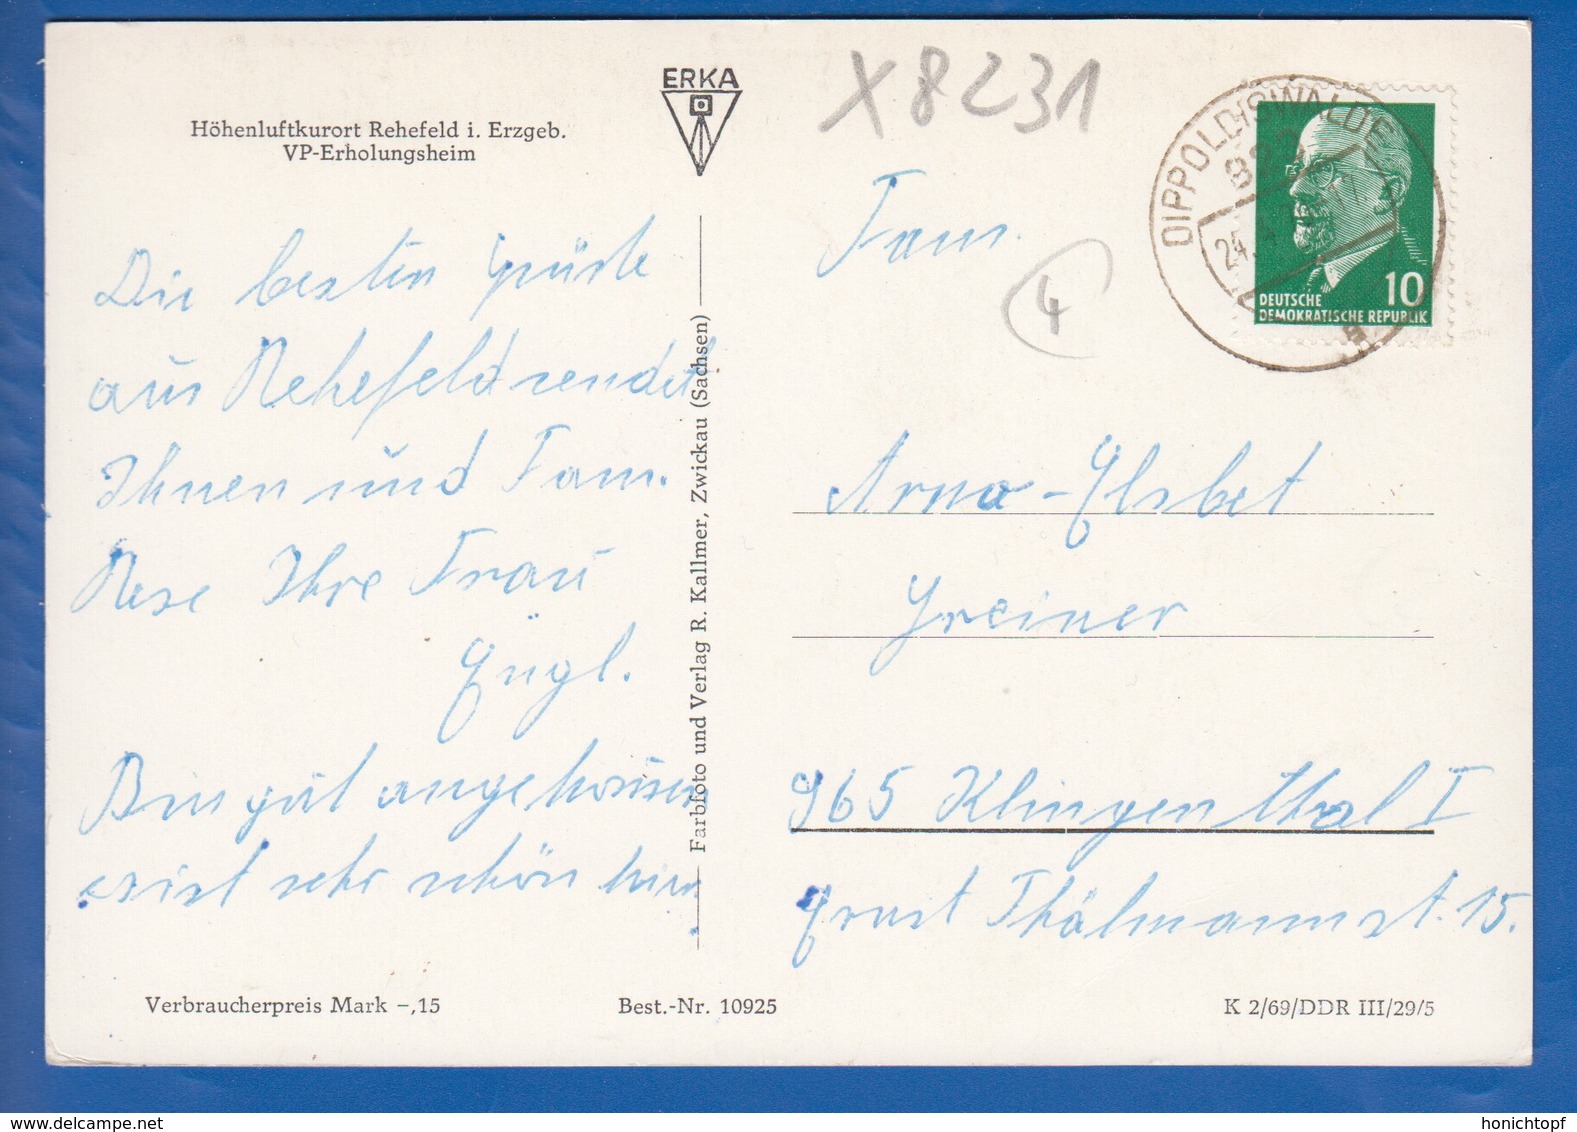 Höhenluftkurort Rehefeld i. Erzgeb.
VP-Erholungsheim
ERKA
X 8231
DIPPOLDISWALDE
24.
10
DEUTSCHE
DEMOKRATISCHE REPUBLIK
Die besten Grüße
aus Rehefeld sendet
Ihnen und Fam.
Rese Ihre Frau
Engl.
Bin gut angekommen
es ist sehr schön hier
.
Farbfoto und Verlag R. Kallmer, Zwickau (Sachsen)
Fam.
4
Arno-Elsbet
Greiner
965 Klingenthal I
Ernst Thälmannst. 15.
Verbraucherpreis Mark -,15
Best.-Nr. 10925
K 2/69/DDR III/29/5
www.delcampe.net
honichtopf